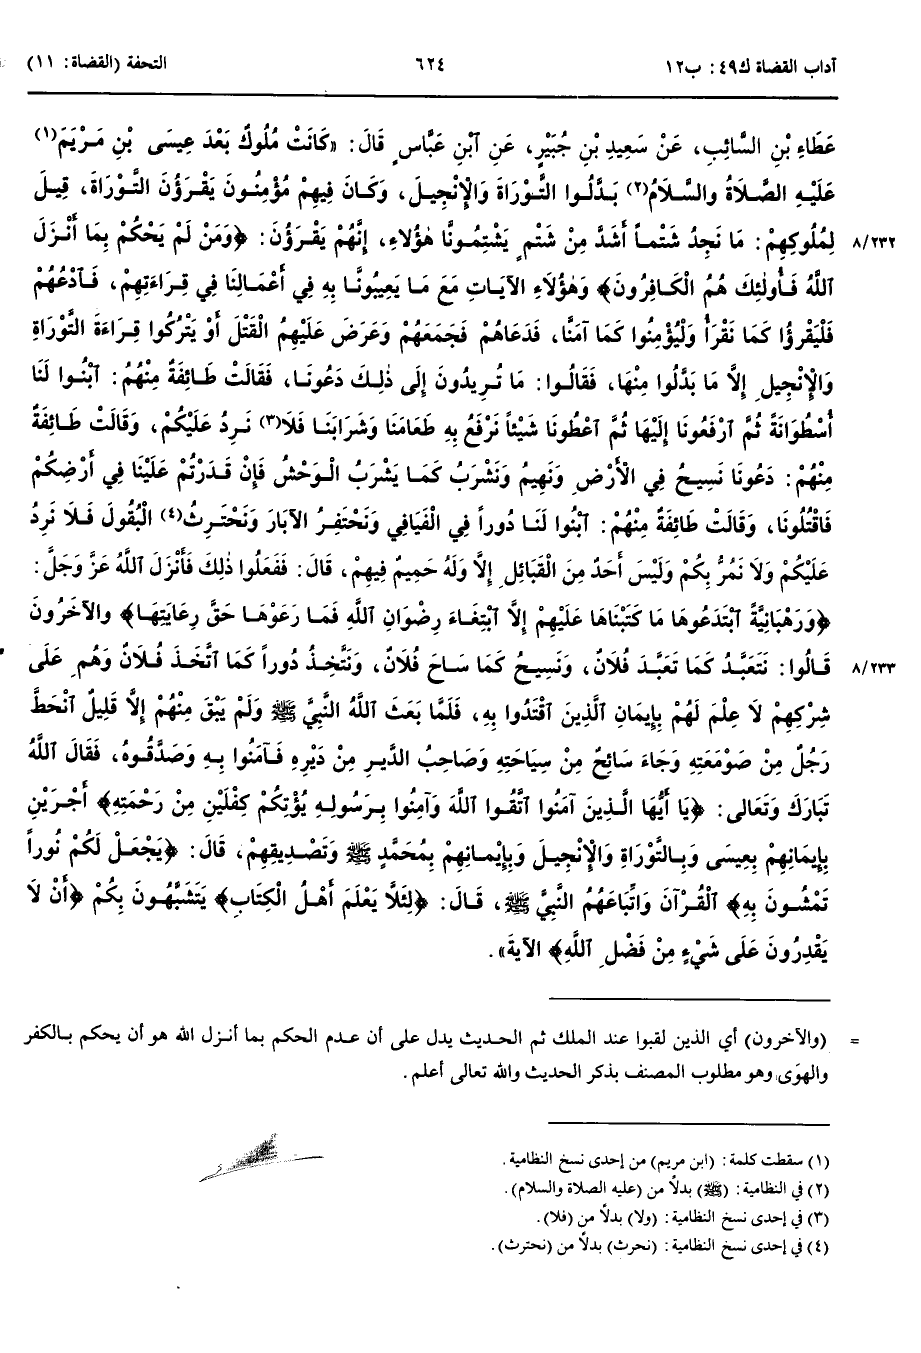 آداب القضاة ك٤٩: ب١٢ ٦٢٤ التحفة (القضاة: ١١)
عَطَاءِ بْنِ السَّائِبِ، عَنْ سَعِيدِ بْنِ جُبَيْرٍ، عَنِ ٱبْنِ عَبَّاسٍ قَالَ: «كَانَتْ مُلُوكٌ بَعْدَ عِيسَى بْنِ مَرْيَمَ(١)
عَلَيْهِ الصَّلَاةُ والسَّلَامُ(٢) بَدَّلُوا التَّوْرَاةَ وَالإِنْجِيلَ، وَكَانَ فِيهِمْ مُؤْمِنُونَ يَقْرَؤُنَ التَّوْرَاةَ، قِيلَ
٨/٢٣٢ لِمُلُوكِهِمْ: مَا نَجِدُ شَتْماً أَشَدَّ مِنْ شَتْمٍ يَشْتِمُونَّا هٰؤُلاءِ، إِنَّهُمْ يَقْرَؤُنَ: ﴿وَمَنْ لَمْ يَحْكُمْ بِمَا أَنْزَلَ
ٱللَّهُ فَأُولٰئِكَ هُمُ الْكَافِرُونَ﴾ وَهٰؤُلَاءِ الآيَاتِ مَعَ مَا يَعِيبُونَّا بِهِ فِي أَعْمَالِنَا فِي قِرَاءَتِهِمْ، فَٱدْعُهُمْ
فَلْيَقْرَؤُا كَمَا نَقْرَأُ وَلْيُؤْمِنُوا كَمَا آمَنَّا، فَدَعَاهُمْ فَجَمَعَهُمْ وَعَرَضَ عَلَيْهِمُ الْقَتْلَ أَوْ يَتْرُكُوا قِرَاءَةَ التَّوْرَاةِ
وَالإِنْجِيلِ إِلَّا مَا بَدَّلُوا مِنْهَا، فَقَالُوا: مَا تُرِيدُونَ إِلَى ذٰلِكَ دَعُونَا، فَقَالَتْ طَائِفَةٌ مِنْهُمُ: ٱبْنُوا لَنَا
أُسْطُوَانَةً ثُمَّ ٱرْفَعُونَا إِلَيْهَا ثُمَّ ٱعْطُونَا شَيْئاً نَرْفَعُ بِهِ طَعَامَنَا وَشَرَابَنَا فَلَا(٣) نَرِدُ عَلَيْكُمْ، وَقَالَتْ طَائِفَةٌ
مِنْهُمْ: دَعُونَا نَسِيحُ فِي الْأَرْضِ وَنَهِيمُ وَنَشْرَبُ كَمَا يَشْرَبُ الْوَحْشُ فَإِنْ قَدَرْتُمْ عَلَيْنَا فِي أَرْضِكُمْ
فَاقْتُلُونَا، وَقَالَتْ طَائِفَةٌ مِنْهُمْ: ٱبْنُوا لَنَا دُوراً فِي الْفَيَافِي وَنَحْتَفِرُ الآبَارَ وَنَحْتَرِثُ(٤) الْبُقُولَ فَلَا نَرِدُ
عَلَيْكُمْ وَلَا نَمُرُّ بِكُمْ وَلَيْسَ أَحَدٌ مِنَ الْقَبَائِلِ إِلَّا وَلَهُ حَمِيمٌ فِيهِمْ، قَالَ: فَفَعَلُوا ذٰلِكَ فَأَنْزَلَ ٱللَّهُ عَزَّ وَجَلَّ:
﴿وَرَهْبَانِيَّةً ٱبْتَدَعُوهَا مَا كَتَبْنَاهَا عَلَيْهِمْ إِلَّا ٱبْتِغَاءَ رِضْوَانِ ٱللَّهِ فَمَا رَعَوْهَا حَقَّ رِعَايَتِهَا﴾ والآخَرُونَ
٨/٢٣٣ قَالُوا: نَتَعَبَّدُ كَمَا تَعَبَّدَ فُلَانٌ، وَنَسِيحُ كَمَا سَاحَ فُلَانٌ، وَنَتَّخِذُ دُوراً كَمَا ٱتَّخَذَ فُلَانٌ وَهُمْ عَلَى
شِرْكِهِمْ لَا عِلْمَ لَهُمْ بِإِيمَانِ ٱلَّذِينَ ٱقْتَدُوا بِهِ، فَلَمَّا بَعَثَ ٱللَّهُ النَّبِيَّ ﷺ وَلَمْ يَبْقَ مِنْهُمْ إِلَّا قَلِيلٌ ٱنْحَطَّ
رَجُلٌ مِنْ صَوْمَعَتِهِ وَجَاءَ سَائِحٌ مِنْ سِيَاحَتِهِ وَصَاحِبُ الدَّيْرِ مِنْ دَيْرِهِ فَآمَنُوا بِهِ وَصَدَّقُوهُ، فَقَالَ ٱللَّهُ
تَبَارَكَ وَتَعَالَى: ﴿يَا أَيُّهَا الَّذِينَ آمَنُوا ٱتَّقُوا ٱللَّهَ وَآمِنُوا بِرَسُولِهِ يُؤْتِكُمْ كِفْلَيْنِ مِنْ رَحْمَتِهِ﴾ أَجْرَيْنِ
بِإِيمَانِهِمْ بِعِيسَى وَبِالتَّوْرَاةِ وَالإِنْجِيلَ وَبِإِيمَانِهِمْ بِمُحَمَّدٍ ﷺ وَتَصْدِيقِهِمْ، قَالَ: ﴿يَجْعَلْ لَكُمْ نُوراً
تَمْشُونَ بِهِ﴾ ٱلْقُرْآنَ وَاتِّبَاعَهُمُ النَّبِيَّ ﷺ، قَالَ: ﴿لِئَلَّا يَعْلَمَ أَهْلُ الْكِتَابِ﴾ يَتَشَبَّهُونَ بِكُمْ ﴿أَنْ لَا
يَقْدِرُونَ عَلَى شَيْءٍ مِنْ فَضْلِ ٱللَّهِ﴾ الآيَةَ».
= (والآخرون) أي الذين لقبوا عند الملك ثم الحديث يدل على أن عدم الحكم بما أنزل الله هو أن يحكم بالكفر
والهوى وهو مطلوب المصنف بذكر الحديث والله تعالى أعلم.
(١) سقطت كلمة: (ابن مريم) من إحدى نسخ النظامية.
(٢) في النظامية: (ﷺ) بدلًا من (عليه الصلاة والسلام).
(٣) في إحدى نسخ النظامية: (ولا) بدلًا من (فلا).
(٤) في إحدى نسخ النظامية: (نحرث) بدلًا من (نحترث).